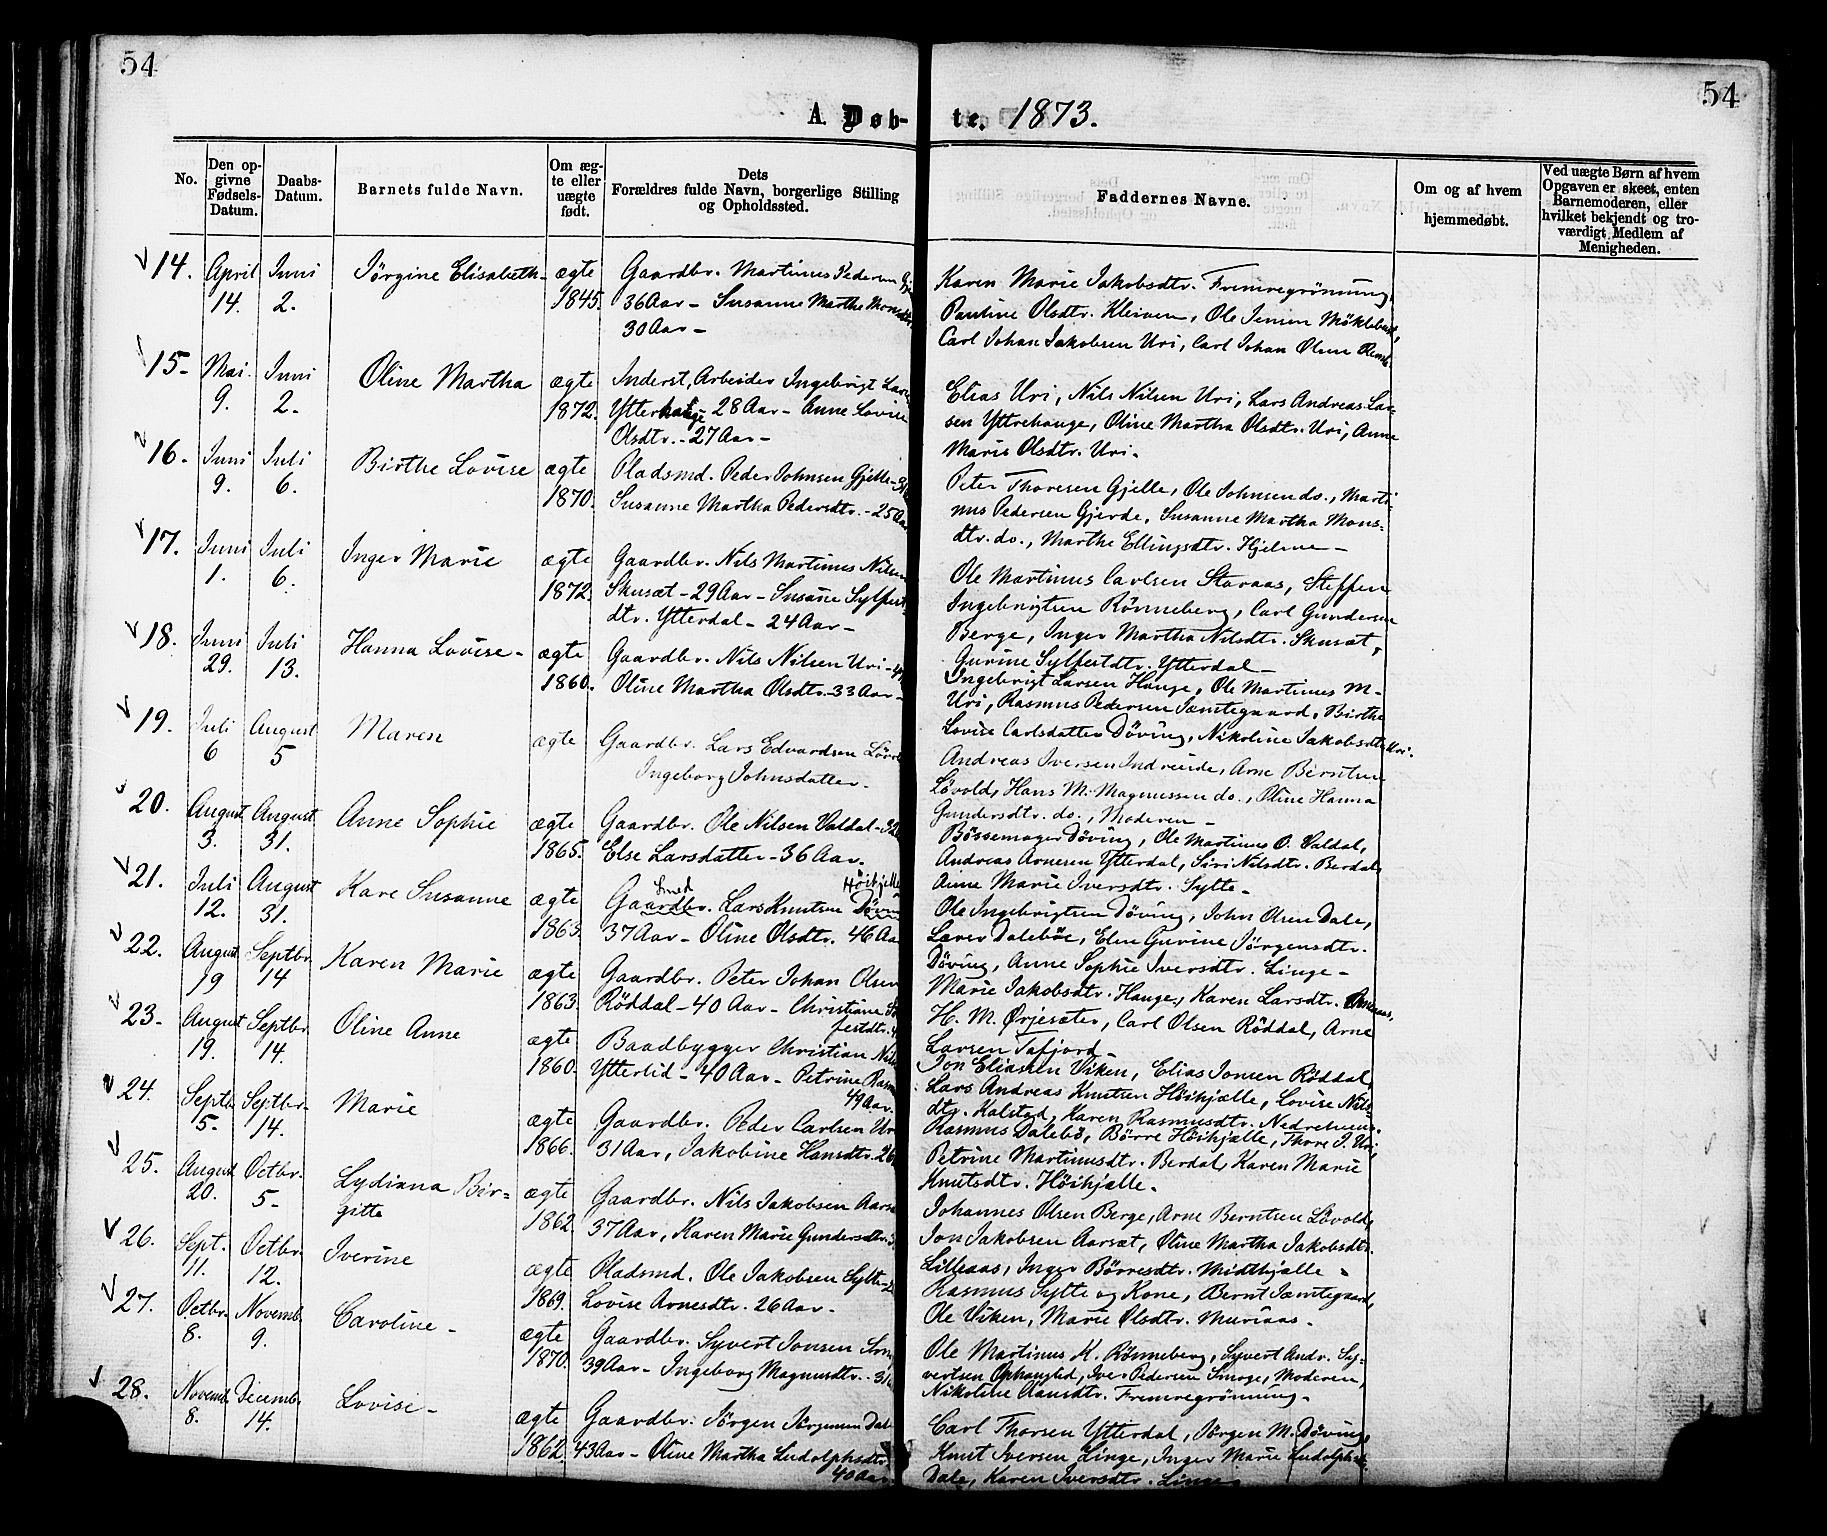 54
54
A. Døb-
te. 1873.
No.
Den op-
givne
Fødsels-
Datum.
Daabs-
Datum.
Barnets fulde Navn.
Om æg-
te eller
uægte
født.
Dets
Forældres fulde Navn, borgerlige Stilling
og Opholdssted.
Faddernes Navne.
Om og af hvem
hjemmedøbt.
Ved uægte Børn af hvem
Opgaven er skeet, enten
Barnemoderen, eller
hvilket bekjendt og tro-
værdigt Medlem af
Menigheden.
14. April 14. Juni 2. Jörgine Elisabeth- ægte 1845.
Gaardbr. Martinus Pedersen
36 Aar - Susanne Marthe
30 Aar -
Karen Marie Jakobsdtr. Fremregrönning,
Pauline Olsdtr. Kleiven, Ole Jensen Möklebust,
Carl Johan Jakobsen Uri, Carl Johan Olsen
15- Mai 9. Juni 2. Oline Martha ægte 1872.
Inderst, Arbeider Ingebrigt
Ytterhauge - 28 Aar - Anne Lovise
Olsdtr. - 27 Aar -
Elias Uri, Nils Nilsen Uri, Lars Andreas Lar-
sen Yttrehauge, Oline Martha Olsdtr. Uri, Anne
Marie Olsdtr. Uri -
16. Juni 9. Juli 6. Birthe Lovise ægte 1870.
Pladsmd. Peder Johnsen Gjelle -
Susanne Martha Pedersdtr. - 25 Aar
Peter Thoresen Gjelle, Ole Johnsen do., Marti-
nus Pedersen Gjerde, Susanne Martha Mons-
dtr. do., Marthe Ellingsdtr. Hjelme -
17. Juni 1. Juli 6. Inger Marie ægte 1872.
Gaardbr. Nils Martinus Nilsen
Skusæt - 29 Aar - Susanne Sylfest-
dtr. Ytterdal - 24 Aar -
Ole Martinus Carlsen Staraas, Steffen
Ingebrigtsen Rönneberg, Carl Gundersen
Berge, Inger Martha Nilsdtr. Skusæt,
Gurine Sylfestdtr. Ytterdal -
18. Juni 29. Juli 13. Hanna Lovise - ægte 1860.
Gaardbr. Nils Nilsen Uri -
Oline Martha Olsdtr. - 33 Aar -
Ingebrigt Larsen Hauge, Ole Martinus M-
Uri, Rasmus Pedersen Jæmtegaard, Birthe
Lovise Carlsdatter Döving, Nikoline Jakobsdtr. Uri.
19. Juli 6 August 5 Maren ægte
Gaardbr. Lars Edvardsen
Ingeborg Johnsdatter -
Andreas Iversen Indreeide, Arne Berntsen
Lövold, Hans M. Magnussen do., Oline Hanna
Gundersdtr. do., Moderen -
20. August 3. August 31. Anne Sophie ægte 1865.
Gaardbr. Ole Nilsen Valdal -
Else Larsdatter - 36 Aar.
Bössemager Döving, Ole Martinus O. Valdal,
Andreas Arnesen Ytterdal, Siri Nilsdtr. Berdal,
Anne Marie Iversdtr. Sylte -
21. Juli 12. August 31. Kare Susanne ægte 1863.
Smed Höihjelle
Gaardbr. Lars Knutsen Döving
37 Aar - Oline Olsdtr. 46 Aar
Ole Ingebrigtsen Döving, John Olsen Dale,
Lærer Daleböe, Elen Gurine Jörgensdtr.
Döving, Anne Sophie Iversdtr. Linge -
22. August 19 Septbr. 14 Karen Marie ægte 1863.
Gaardbr. Peter Johan Olsen
Röddal - 40 Aar - Christiane
festdtr.
Marie Jakobsdtr. Hauge, Karen Larsdtr.
H. M. Örjesæter, Carl Olsen Röddal, Arne
Larsen Tafjord -
23- August 19. Septbr. 14. Oline Anne ægte 1860.
Baadbygger Christian
Ytterlid - 40 Aar - Petrine
49 Aar.
Jon Eliassen Viken, Elias Jonsen Röddal,
Lars Andreas Knutsen Höihjælle, Lovise Nils-
dtr. Kalstad, Karen Rasmusdtr.
24. Septbr. 5. Septbr. 14. Marie ægte 1866.
Gaardbr. Peder Carlsen Uri
31 Aar, Jakobine Hansdtr. 26
Rasmus Dalebö, Börre Höihjælle, Thore J. Uri,
Petrine Martinusdtr. Berdal, Karen Marie
Knutsdtr. Höihjælle -
25. August 20. Octbr. 5- Lydiana Bir-
gitte ægte 1862
Gaardbr. Nils Jakobsen Aarsæt
37 Aar, Karen Marie Gundersdtr.
Johannes Olsen Berge, Arne Berntsen Lövold,
Jon Jakobsen Aarsæt, Oline Martha Jakobsdtr.
Lilleaas, Inger Börresdtr. Midthjælle -
26. Sept. 11. Octbr. 12. Iverine ægte 1869.
Pladsmd. Ole Jakobsen Sylte -
Lovise Arnesdtr. 26 Aar -
Rasmus Sylte og Kone, Bernt Jæmtegaard,
Ole Viken, Marie Olsdtr. Muriaas -
27. Octbr. 8. Novemb. 9. Caroline - ægte 1870.
Gaardbr. Syvert Jonsen
39 Aar - Ingeborg Magnusdtr. - 31
Ole Martinus K. Rönneberg, Syvert Andr. Sy-
vertsen Ophauglid, Iver Pedersen Smoge, Moderen,
Nikoline Clausdtr. Fremregrönning -
28. Novemb. 8. Decemb. 14. Lovise - ægte 1862.
Gaardbr. Jörgen Jörgensen Dale
43 Aar - Oline Martha Ludolphsdtr.
40 Aar
Carl Thorsen Ytterdal, Jörgen M. Döving,
Knut Iversen Linge, Inger Marie Ludolphsdtr.
Dale, Karen Iversdtr. Linge